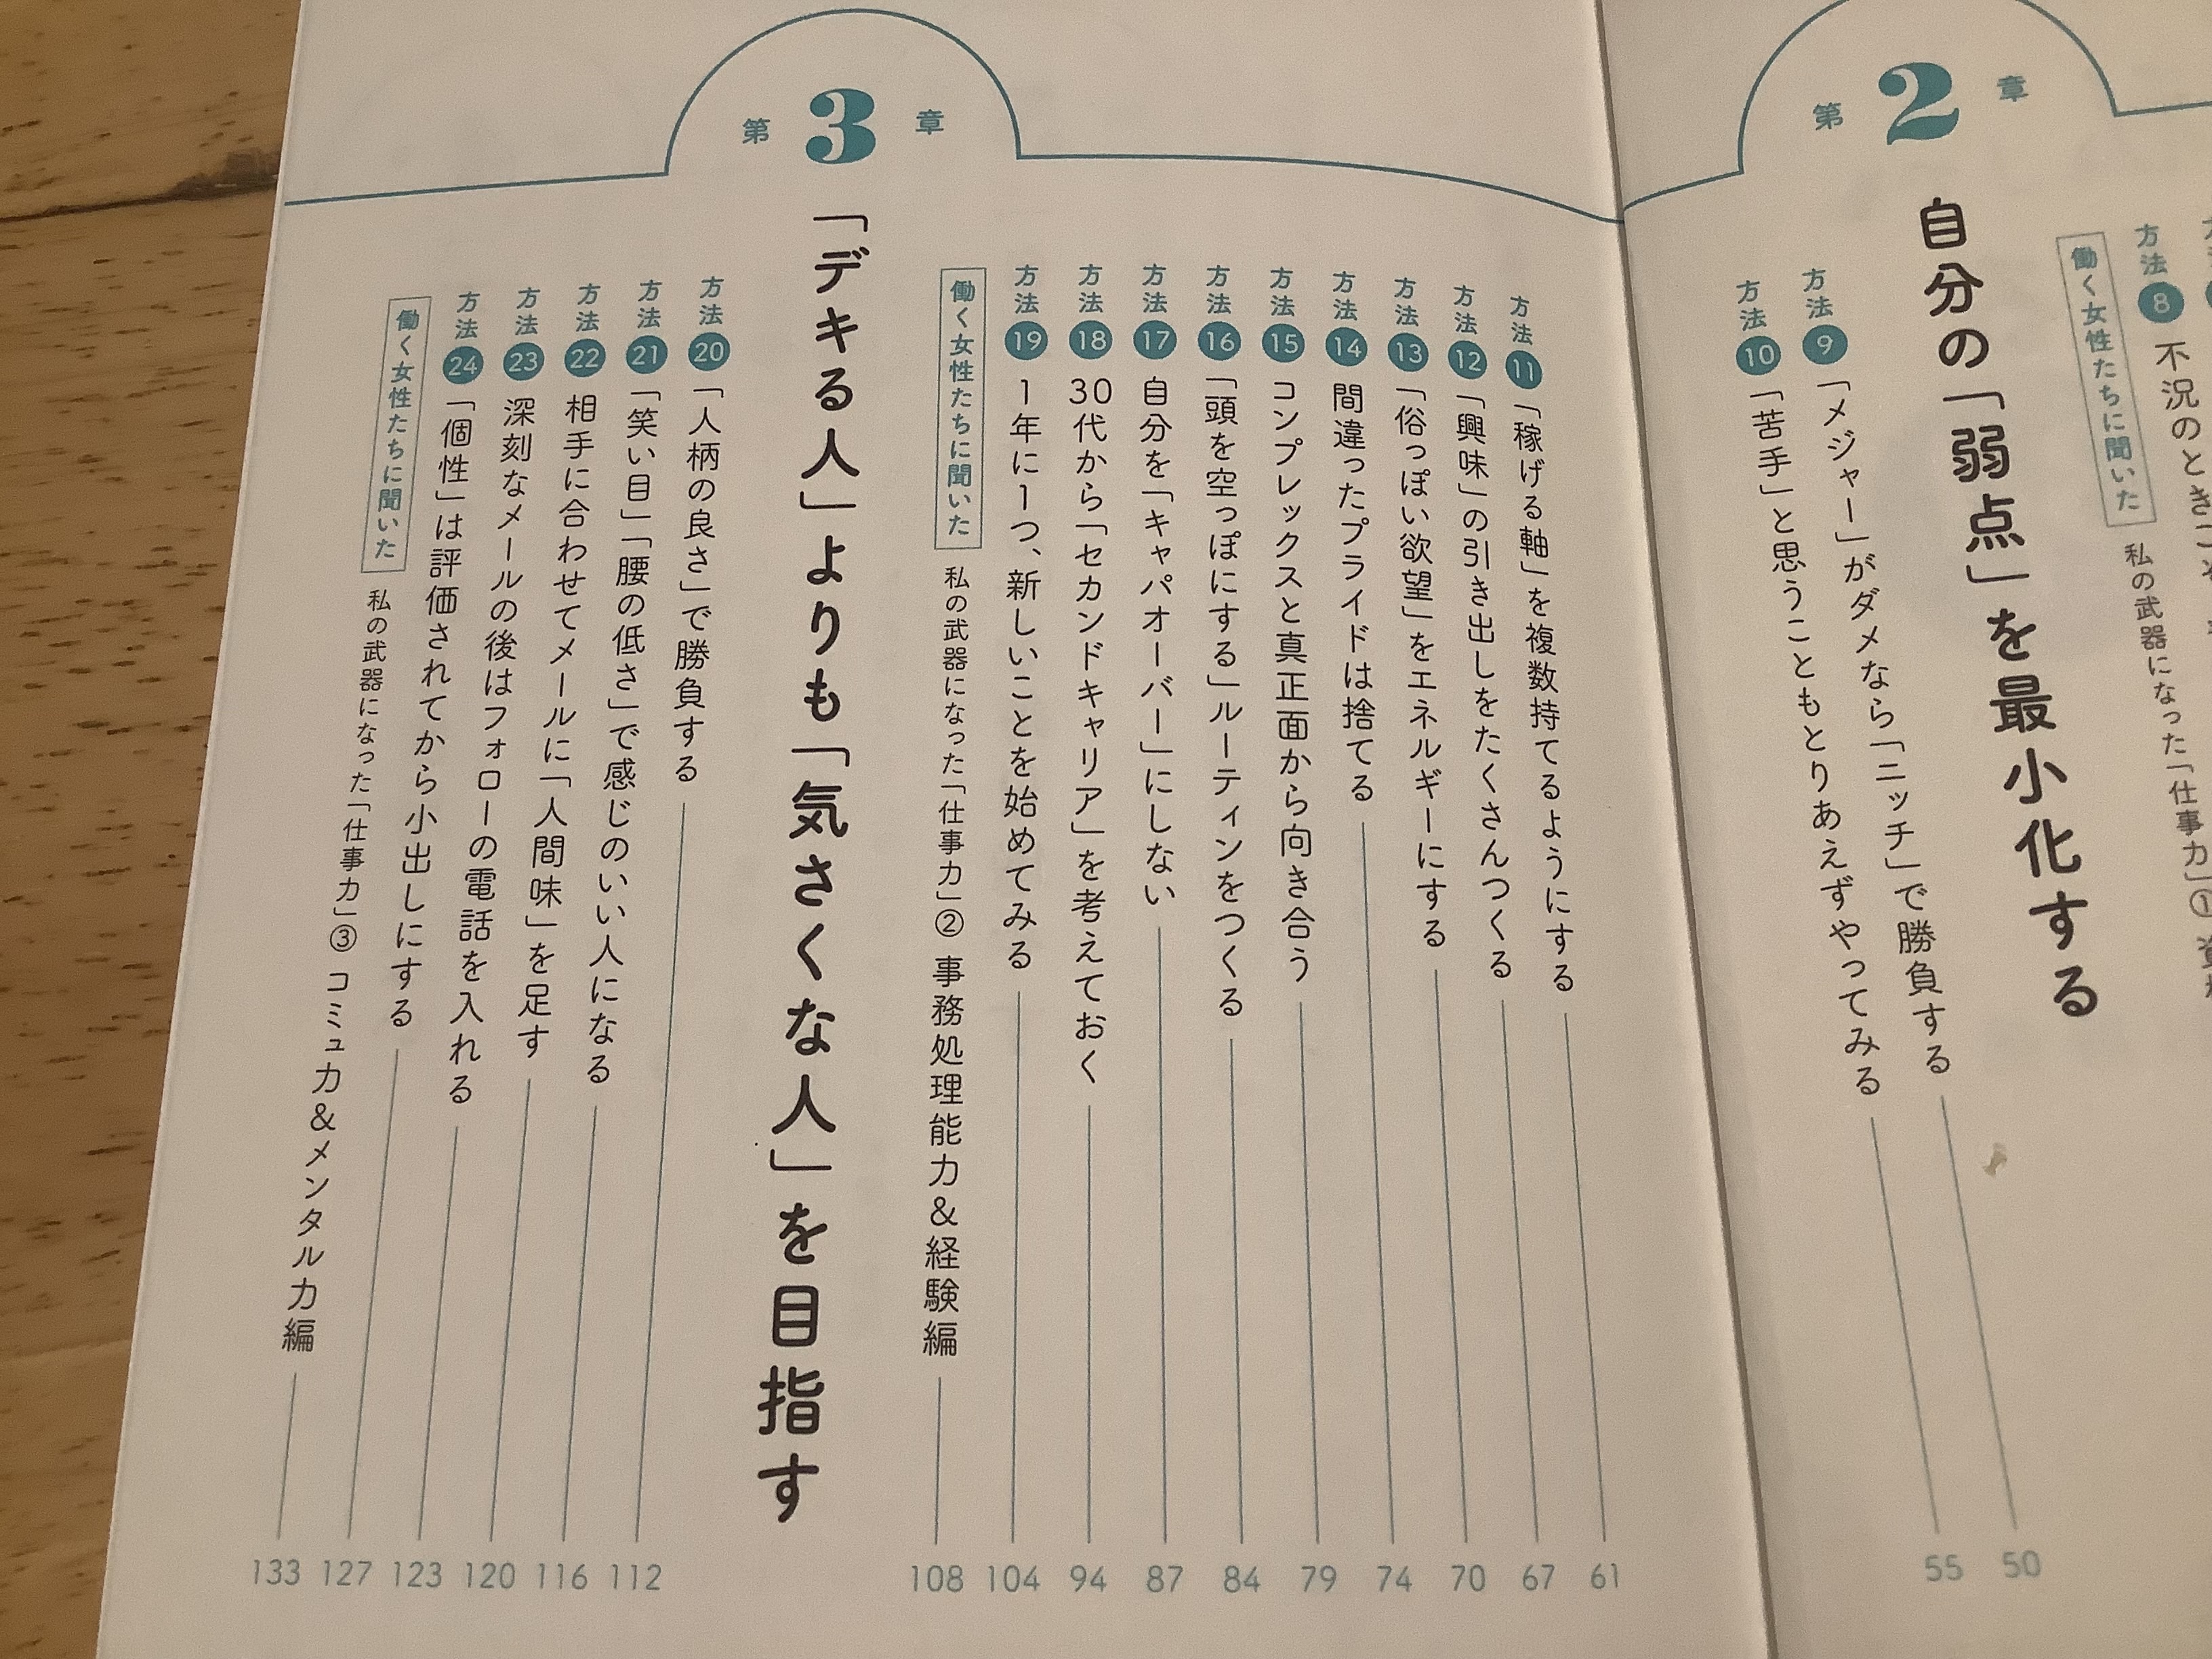 方法 8 不況のとき
働く女性たちに聞いた 私の武器になった「仕事力」①
第2章
自分の「弱点」を最小化する
方法 9 「メジャー」がダメなら「ニッチ」で勝負する 50
方法 10 「苦手」と思うこともとりあえずやってみる 55
方法 11 「稼げる軸」を複数持てるようにする 61
方法 12 「興味」の引き出しをたくさんつくる 67
方法 13 「俗っぽい欲望」をエネルギーにする 70
方法 14 間違ったプライドは捨てる 74
方法 15 コンプレックスと真正面から向き合う 79
方法 16 「頭を空っぽにする」ルーティンをつくる 84
方法 17 自分を「キャパオーバー」にしない 87
方法 18 30代から「セカンドキャリア」を考えておく 94
方法 19 1年に1つ、新しいことを始めてみる 104
働く女性たちに聞いた 私の武器になった「仕事力」② 事務処理能力&経験編 108
第3章
「デキる人」よりも「気さくな人」を目指す
方法 20 「人柄の良さ」で勝負する 112
方法 21 「笑い目」「腰の低さ」で感じのいい人になる 116
方法 22 相手に合わせてメールに「人間味」を足す 120
方法 23 深刻なメールの後はフォローの電話を入れる 123
方法 24 「個性」は評価されてから小出しにする 127
働く女性たちに聞いた 私の武器になった「仕事力」③ コミュ力&メンタル力編 133